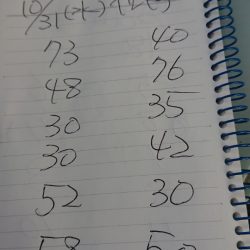 10/31
73 40
48 76
30 35
30 42
52 30
58